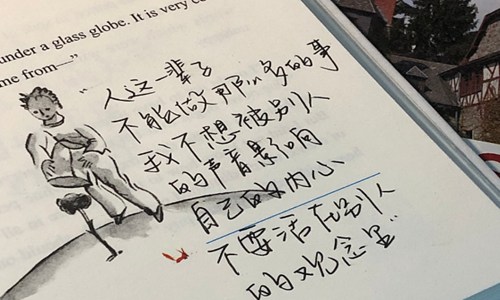 under a glass globe. It is very
me from—"
“人这一辈子
不能做那么多的事
我不想被别人
的声音影响
自己的内心
不要活在别人
的观念里”